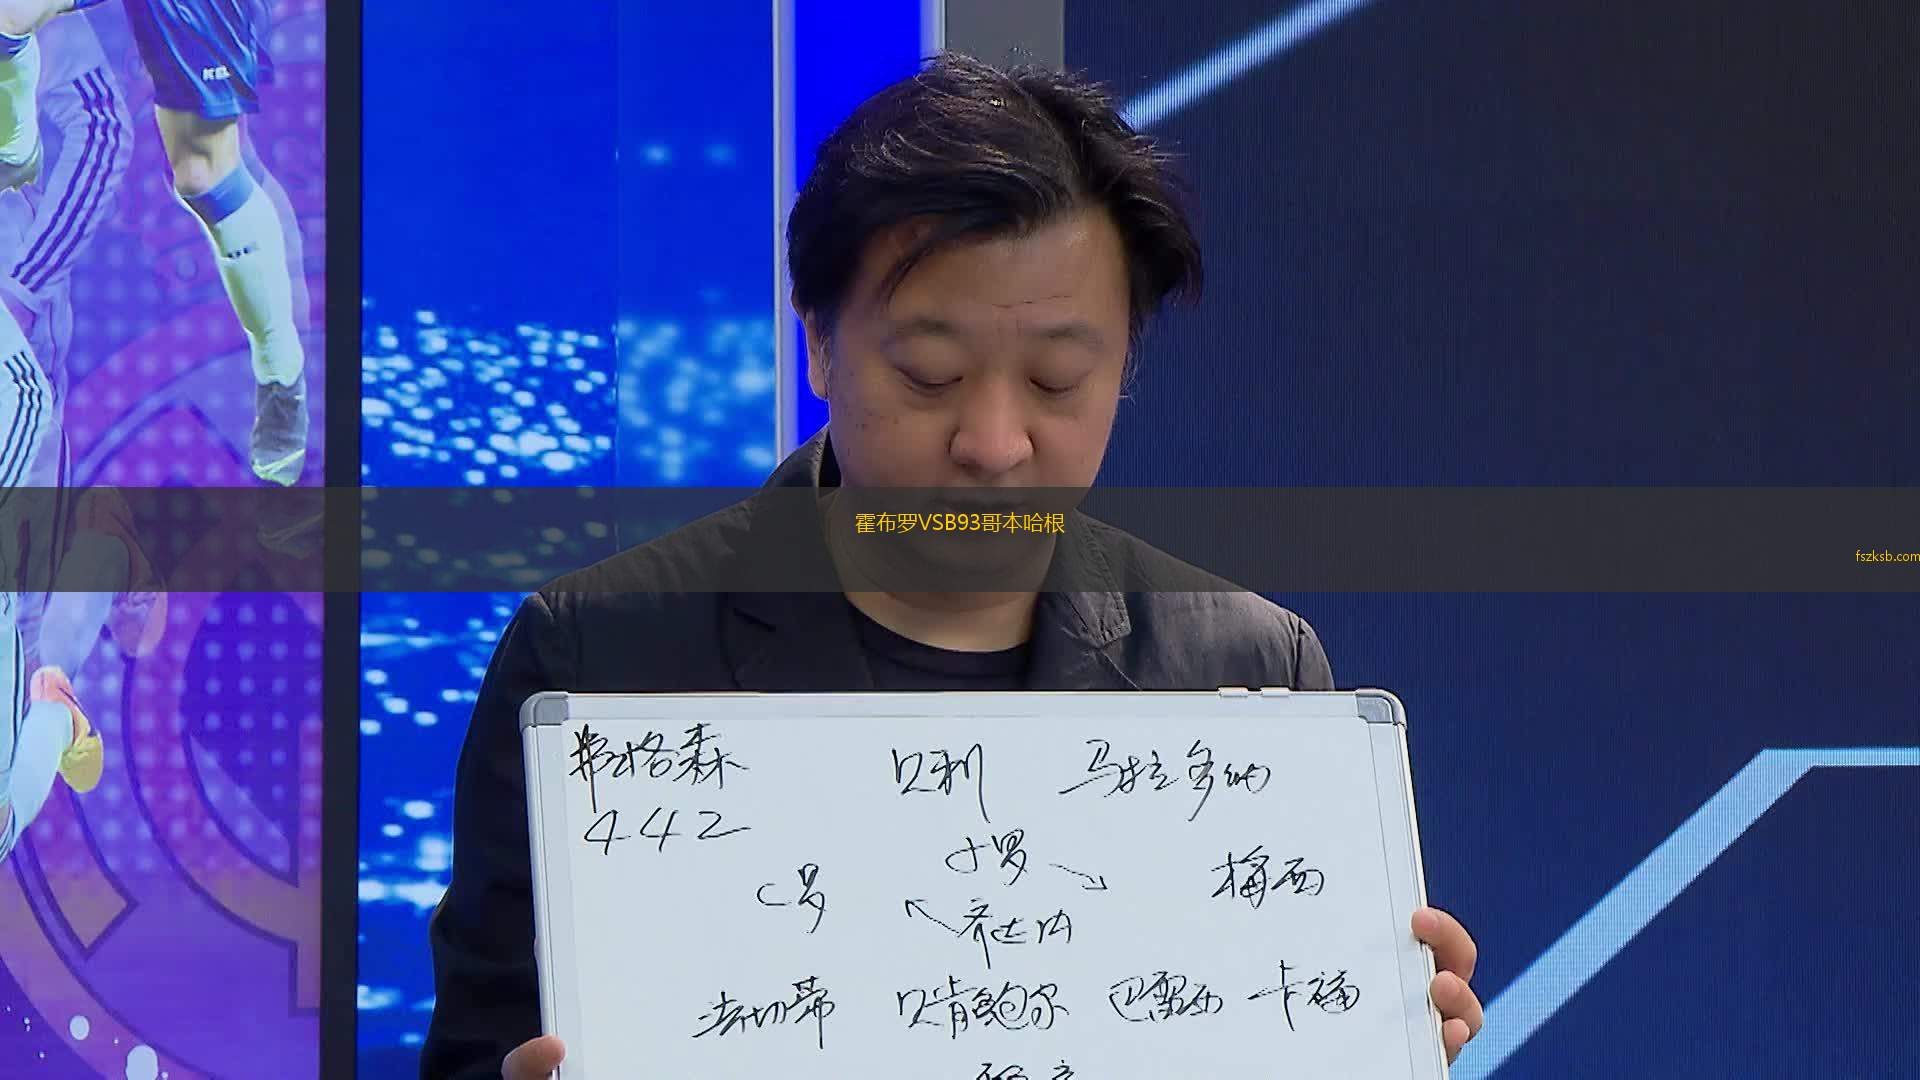 霍布罗VSB93哥本哈根
fszksb.com
弗格森 贝利 马拉多纳
442
小罗
C罗 梅西
齐达内
法切蒂 贝肯鲍尔 巴雷西 卡福